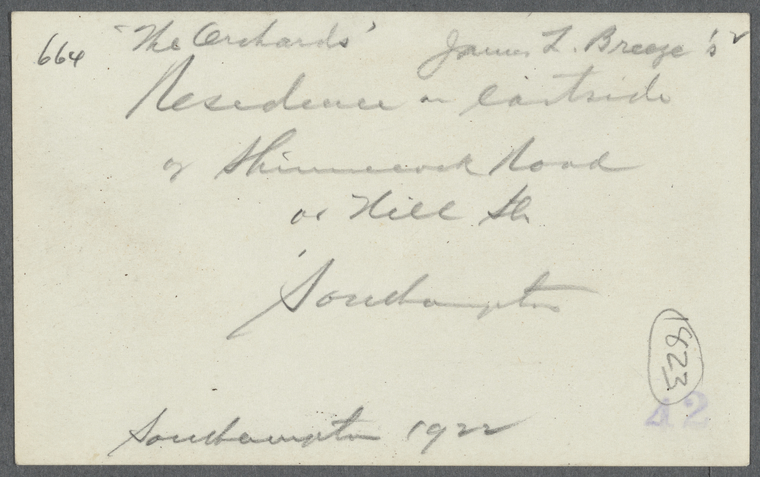 664 "The Orchards" James L. Breeze's
Residence on Eastside
of Shinnecock Road
or Hill St.
Southampton
1823
42
Southampton 1922